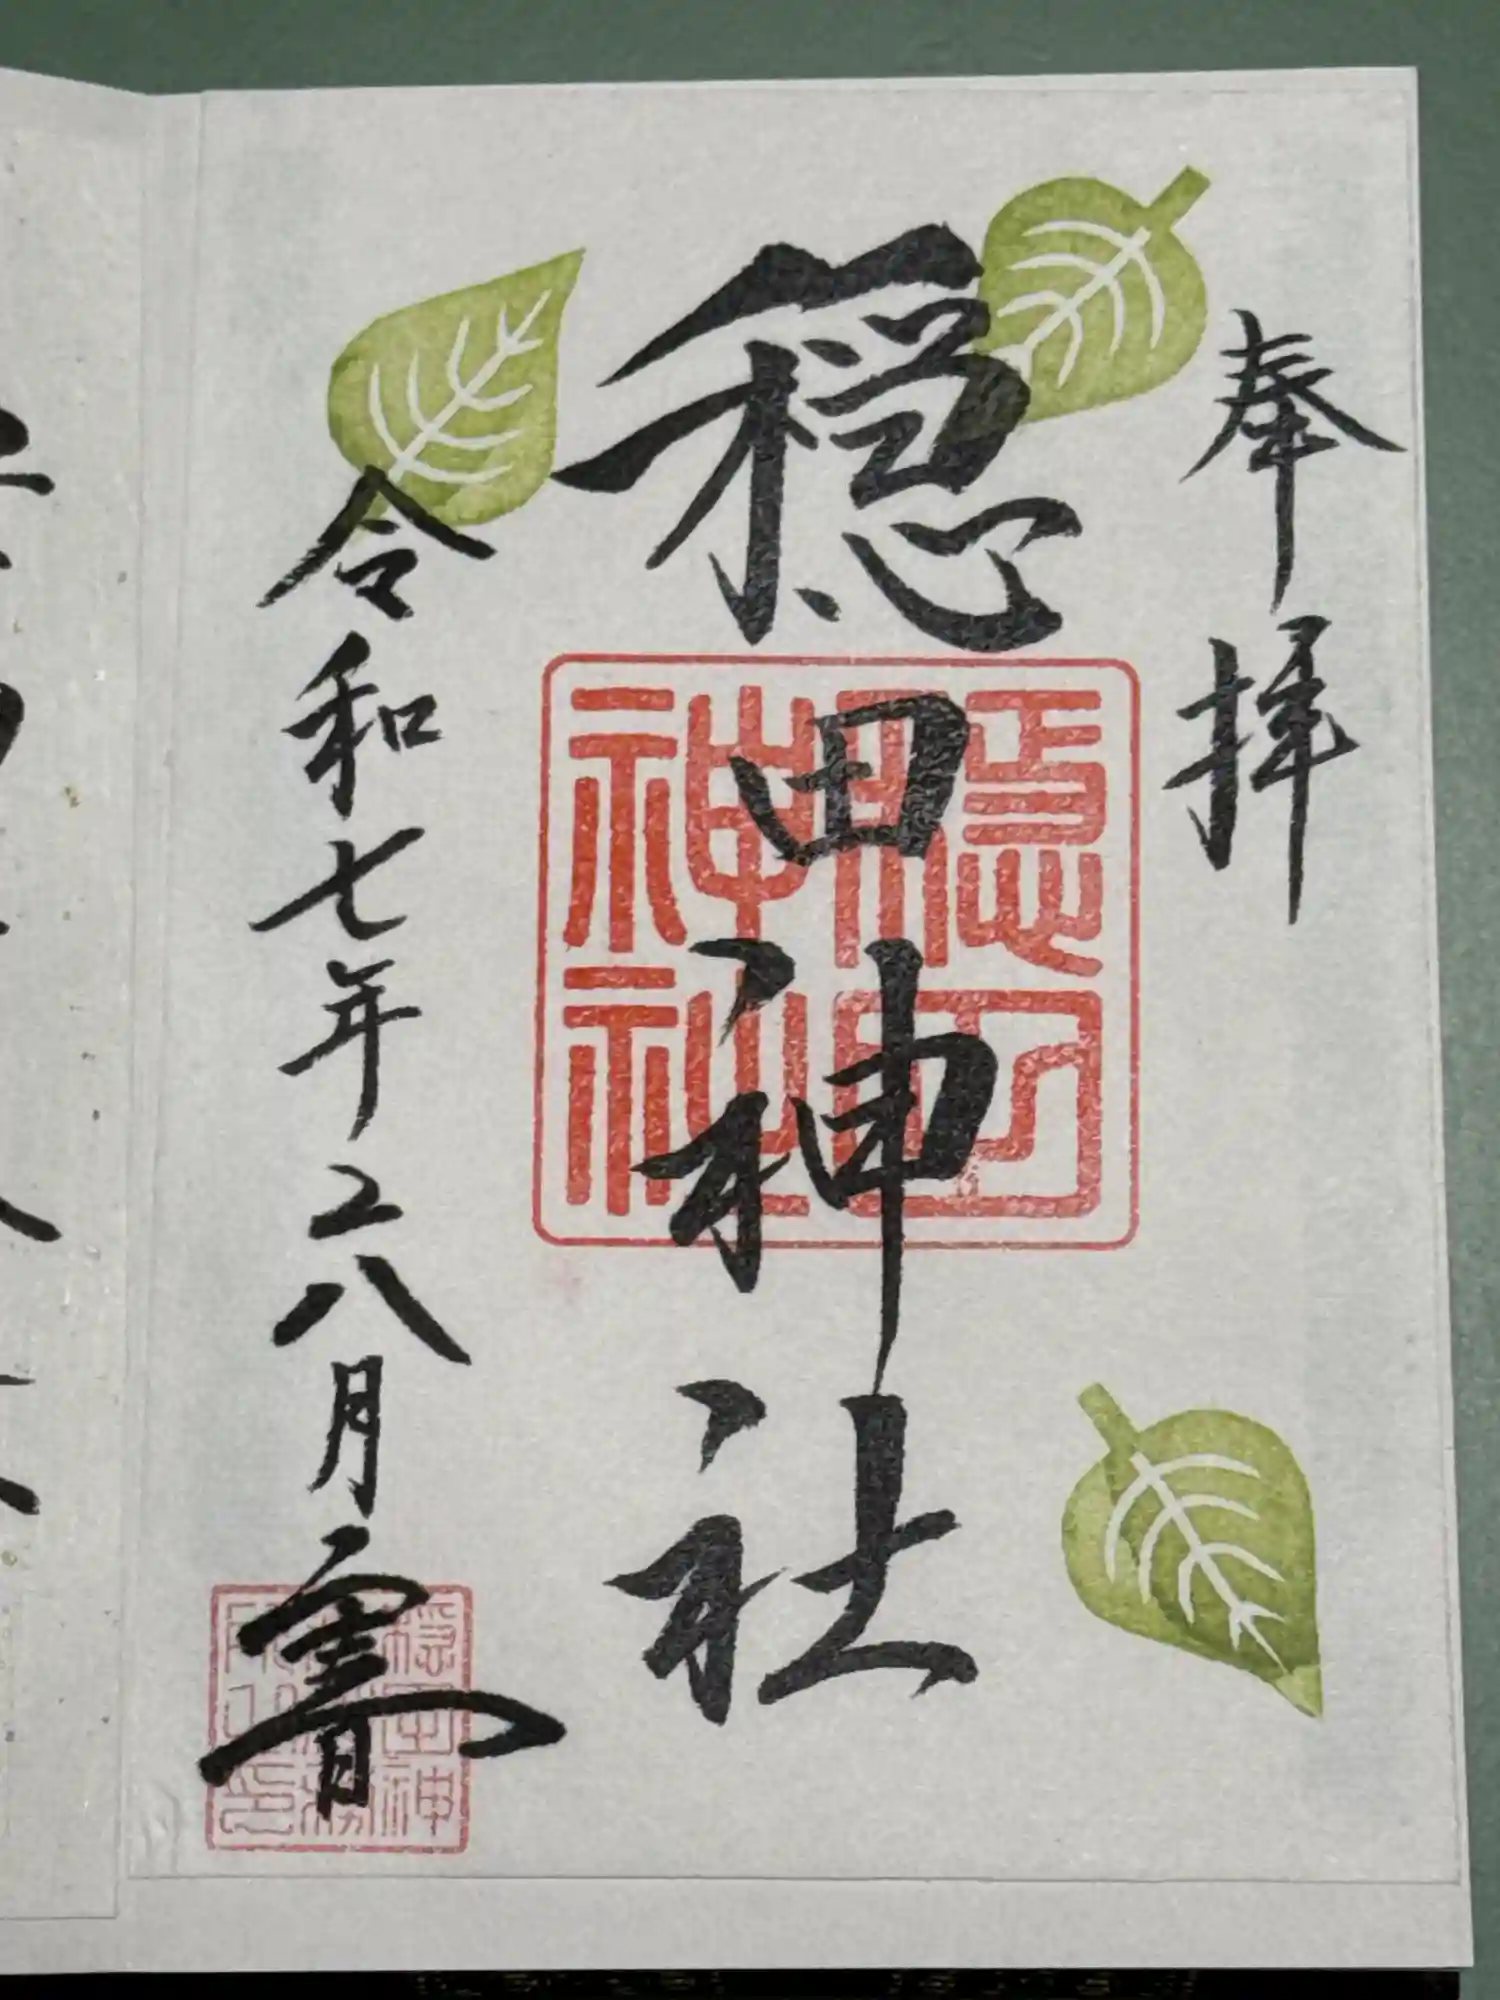 奉拝
穏田神社
穏田神社
令和七年六月
穏田神社社務所之印